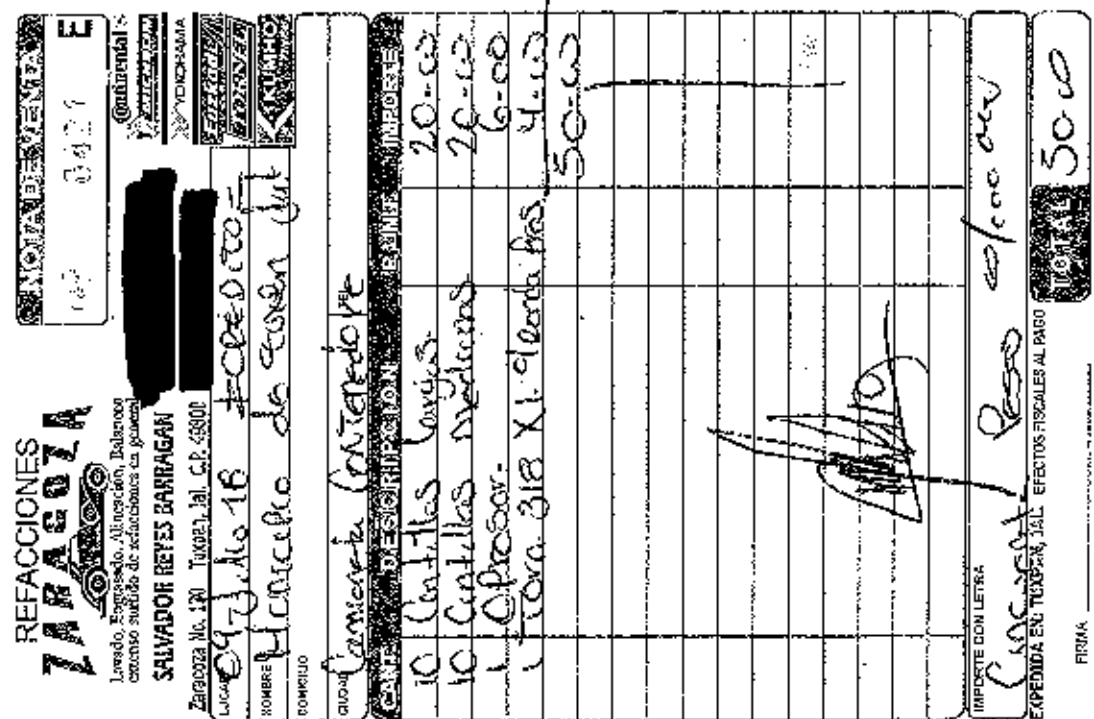 REFACCIONES
ZARAGOZA
Lavado, Engrasado, Alineación, Balanceo
extenso surtido de refacciones en general
SALVADOR REYES BARRAGAN
Zaragoza No. 130 Tuxpan, Jal. C.P. 49800
NOTA DE VENTA
0421 E
Continental
YOKOHAMA
KUMHO
LUGAR 09 Julio 18 =CREDITO=
NOMBRE Municipio de Tuxpan Jal
DOMICILIO
CIUDAD Camioneta Contenedore TEL
CANT. DESCRIPCION P. UNIT. IMPORTE
10 Cintillos Largos 20-00
10 Cintillos medianos 20-00
1 6-00
1 318 X 1 4-00
50-00
IMPORTE CON LETRA
Cincuenta Pesos
TOTAL 50-00
EXPEDIDA EN: TUXPAN, JAL. EFECTOS FISCALES AL PAGO
FIRMA